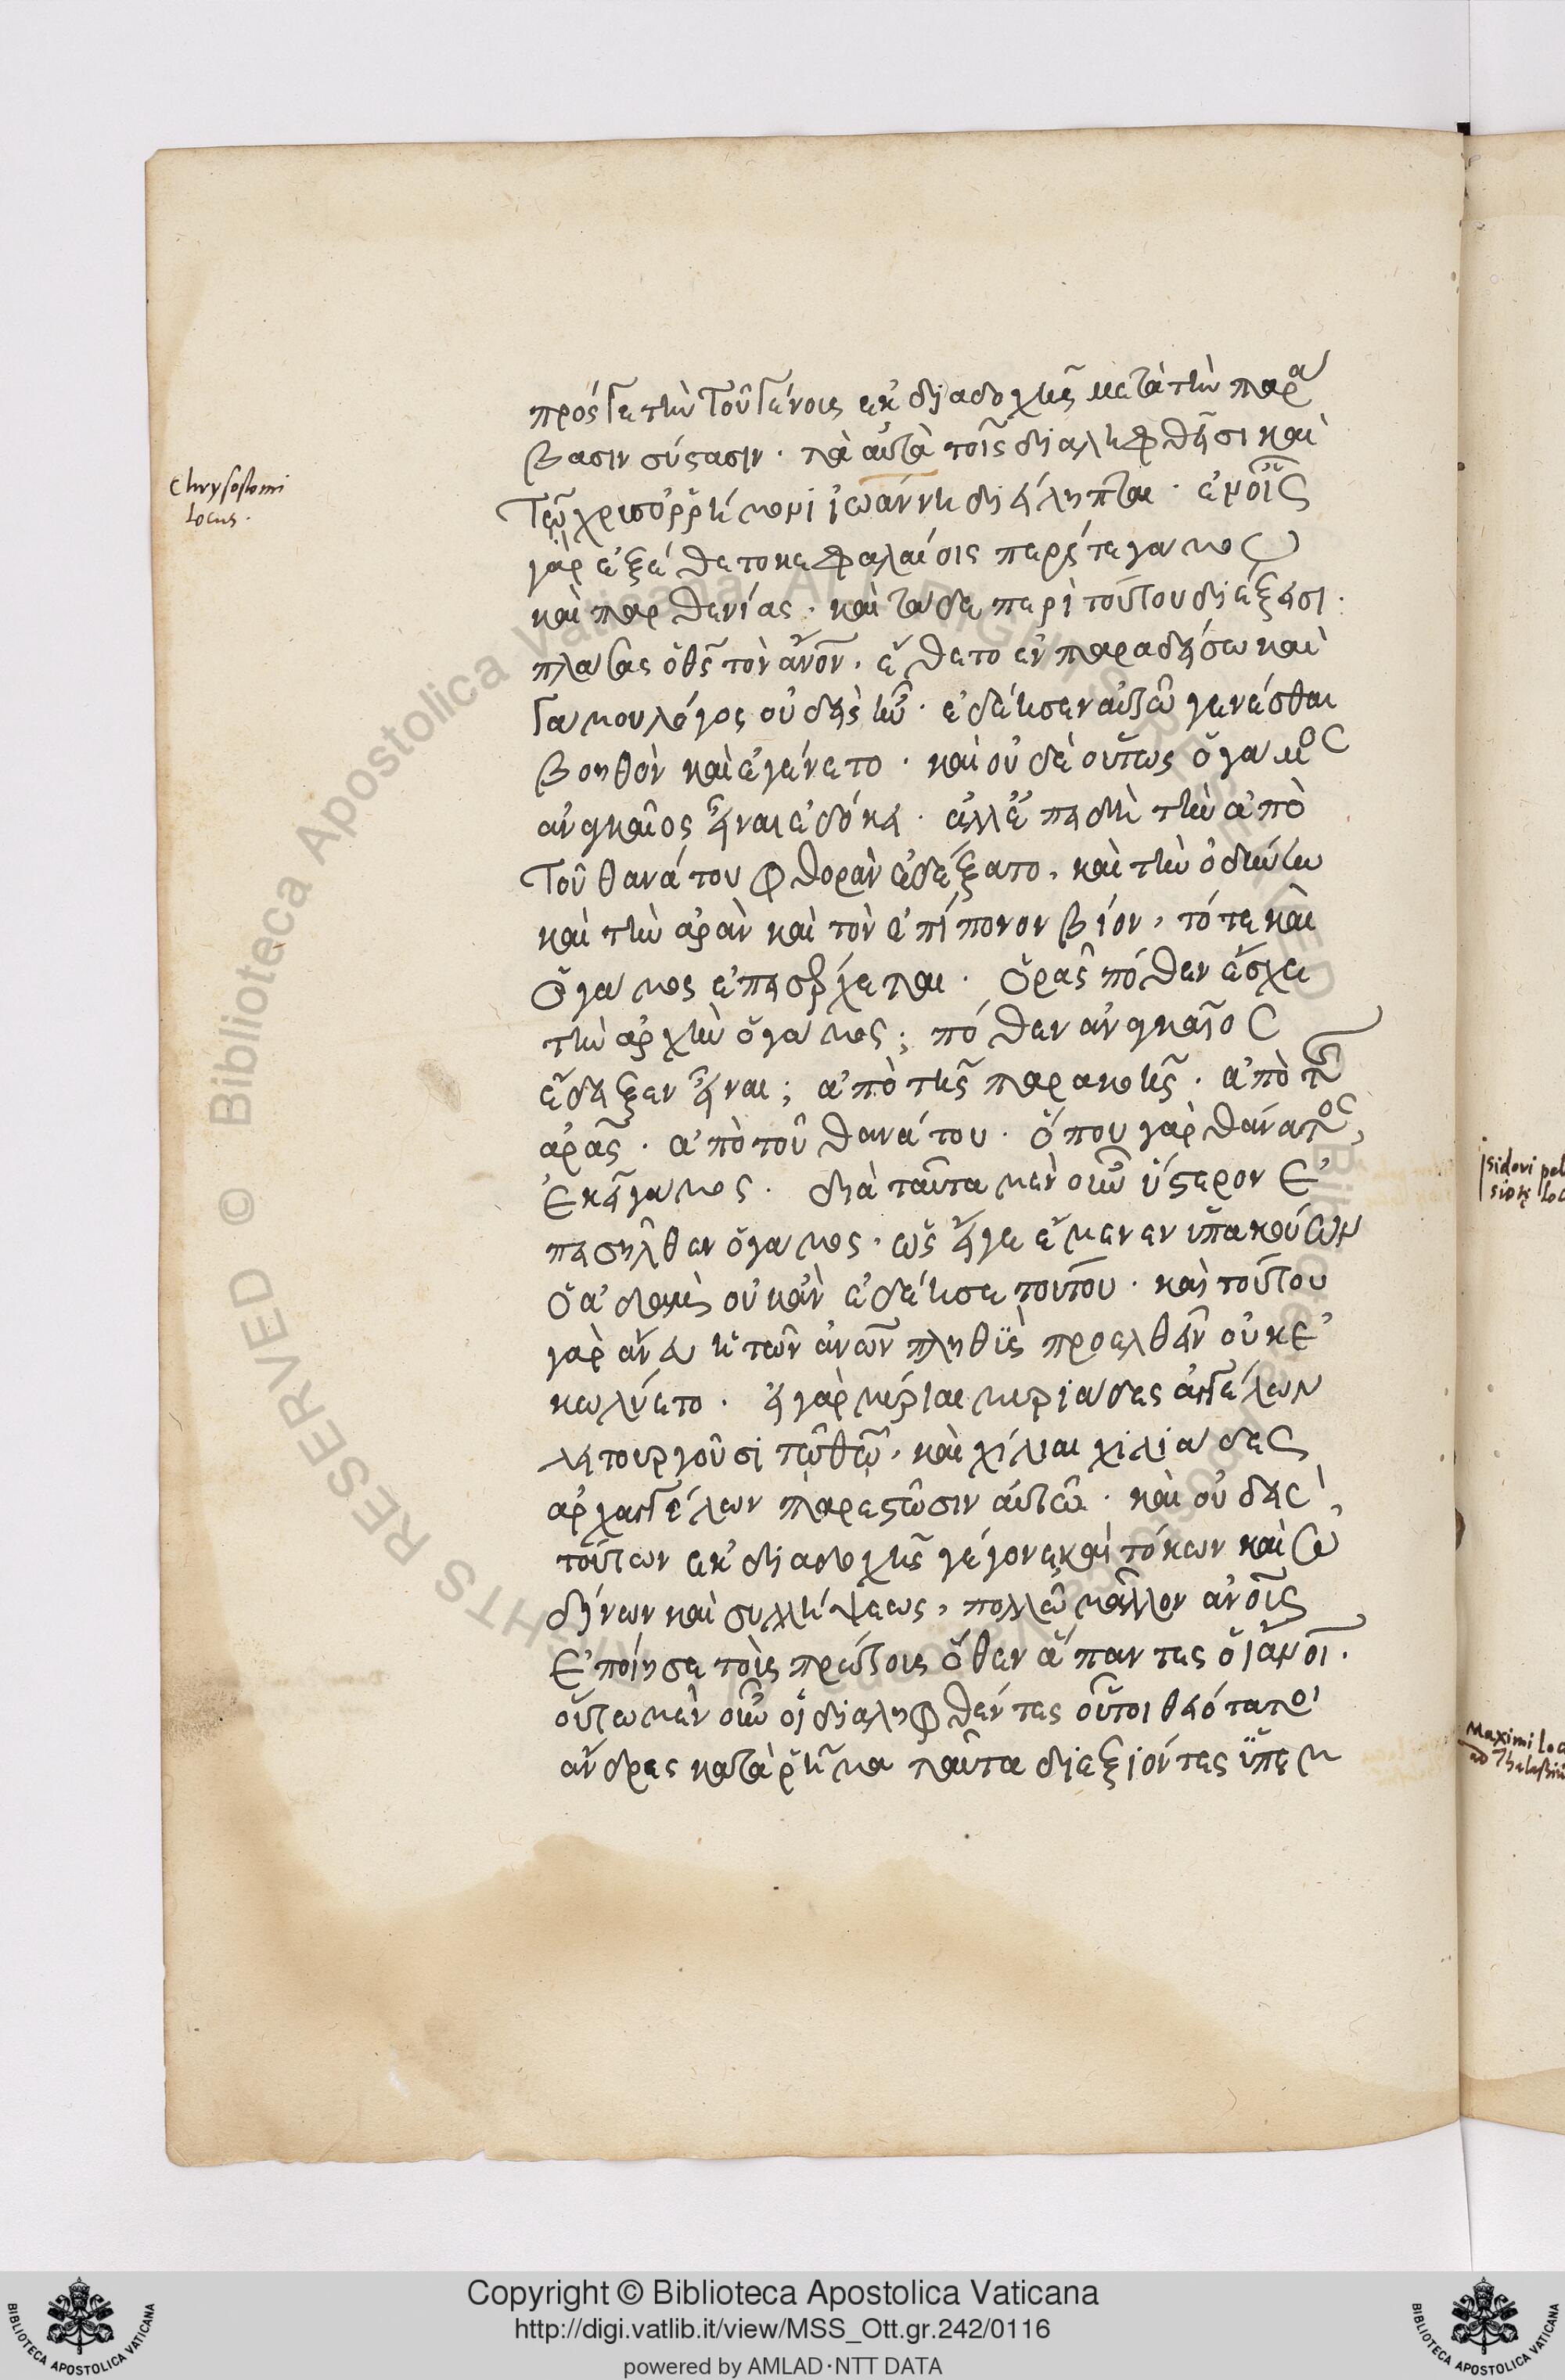 πρός γε τὴν τοῦ γένους ἐκ διαδοχῆς μετὰ τὴν παρα
βασιν σύστασιν. τὰ αὐτὰ τοῖς διαληφθεῖσι καὶ
τῷ χρυσορρήμονι ἰωάννη διείληπται. ἐν οἷς
γὰρ ἐξέθετο κεφαλαίοις περί τε γάμου
καὶ παρθενίας. καὶ τάδε περὶ τούτου διέξεισι.
πλάσας ὁ θς τὸν ἄνον, ἔθετο ἐν παραδείσω καὶ
γάμου λόγος οὐδεὶς ἦν. ἐδέησεν αὐτῶ γενέσθαι
βοηθὸν καὶ ἐγένετο. καὶ οὐδὲ οὕτως ὁ γάμος
ἀναγκαῖος εἶναι ἐδόκει. ἀλλ' ἐπειδὴ τὴν ἀπὸ
τοῦ θανάτου φθορὰν ἐδέξατο, καὶ τὴν ὀδύνην
καὶ τὴν ἀρὰν καὶ τὸν ἐπίπονον βίον, τότε καὶ
ὁ γάμος ἐπεισέρχεται. ὁρᾶς πόθεν ἔσχε
τὴν ἀρχὴν ὁ γάμος; πόθεν ἀναγκαῖος
ἔδοξεν εἶναι; ἀπὸ τῆς παρακοῆς. ἀπὸ τῆς
ἀρᾶς. ἀπὸ τοῦ θανάτου. ὅπου γὰρ θάνατος,
ἐκεῖ γάμος. διὰ ταῦτα μὲν οὖν ὕστερον ἐ
πεισῆλθεν ὁ γάμος. ὡς εἴγε ἔμενεν ὑπακούων
ὁ ἀδαμ οὐκ ἂν ἐδέησε τούτου. καὶ τούτου
γὰρ ἄνευ ἡ τῶν ἀνων πληθὺς προελθεῖν οὐκ ἐ
κωλύετο. εἰ γὰρ μύριαι μυριάδες ἀγγέλων
λειτουργοῦσι τῷ θῷ, καὶ χίλιαι χιλιάδες
ἀρχαγγέλων παρεστῶσιν αὐτῶ. καὶ οὐδεὶς,
τούτων ἐκ διαδοχῆς γέγονε καὶ τόκων καὶ ὠ
δίνων καὶ συλλήψεως, πολλῶ μᾶλλον ἂν οἷς
ἐποίησε τοὺς πρώτους ὅθεν ἅπαντες οἱ ἄνοι.
οὕτω μὲν οὖν οἱ διαληφθέντες οὗτοι θειότατοι
ἄνδρες κατὰ ῥῆμα ταῦτα διεξιόντες ὑπὲρ
Chrysostomi
locus.
Maximi loc
ad Thalassiu
Copyright © Biblioteca Apostolica Vaticana
http://digi.vatlib.it/view/MSS_Ott.gr.242/0116
powered by AMLAD·NTT DATA
BIBLIOTECA APOSTOLICA VATICANA
BIBLIOTECA APOSTOLICA VATICANA